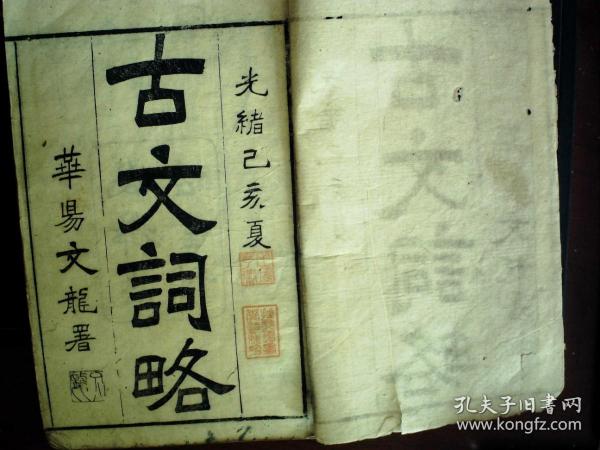 光緒己亥夏
古文詞略
華昜文龍署
孔夫子旧书网
www.kongfz.com